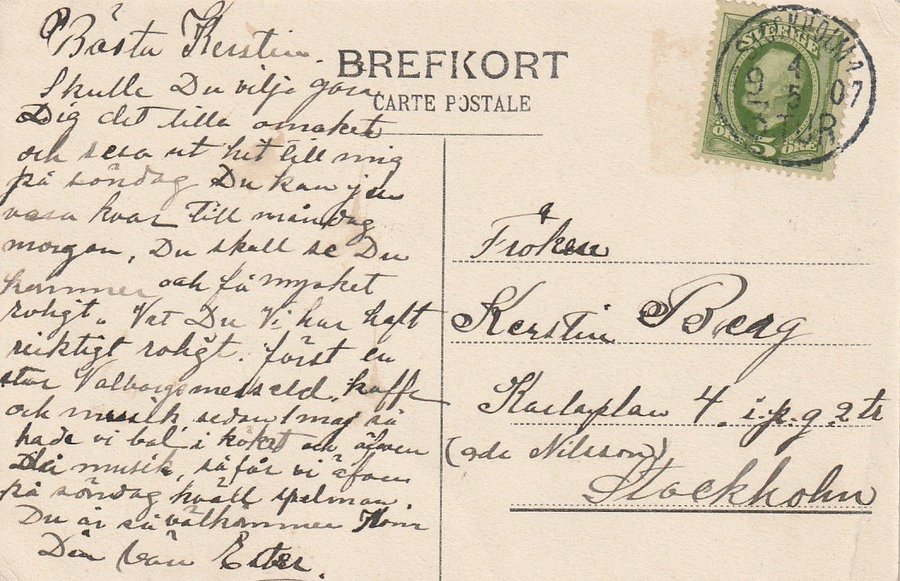 Bästa Kerstin.
Skulle Du vilja göra
Dig det lilla omaket
och resa ut hit till mig
på söndag Du kan ju
vara kvar till måndag
morgon, Du skall se Du
kommer och få mycket
roligt. Vet Du Vi har haft
riktigt roligt. först en
stor Valborgsmesseld, kaffe
och musik, sedan 1 maj så
hade vi bal i köket och äfven
musik, så får vi äfven
på söndag kväll spelman
Du är så välkommen Kom
Din Vän Ester.
BREFKORT
CARTE POSTALE
SVERIGE
5
STOCKHOLM
4
5
07
TUR
Fröken
Kerstin Berg
Karlaplan 4, i.p.g. 2 tr
(adr Nilsson)
Stockholm